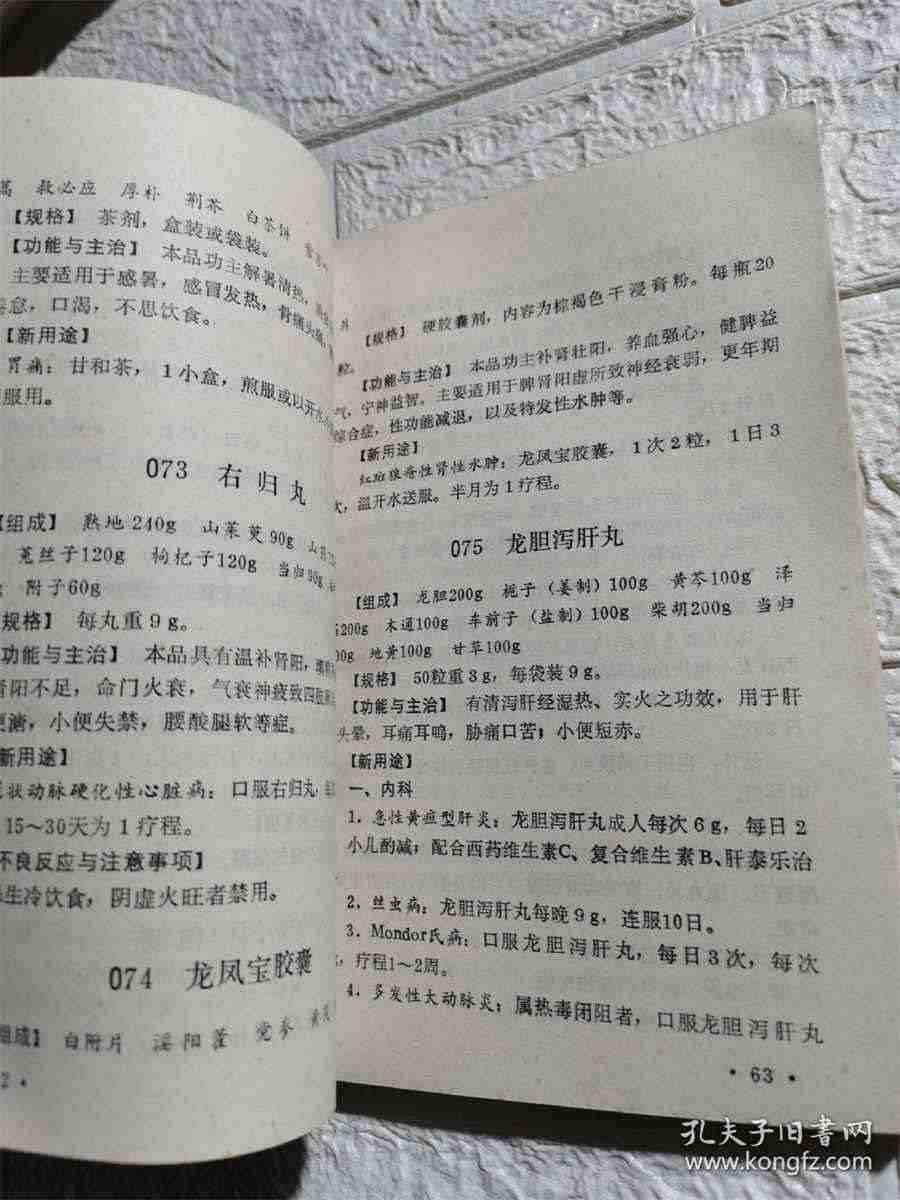 救必应 厚朴 荆芥 白茶饼
【规格】 茶剂，盒装或袋装。
【功能与主治】 本品功主解暑清热，
主要适用于感暑，感冒发热，骨痛头痛，
倦怠，口渴，不思饮食。
【新用途】
胃痛：甘和茶，1小盒，煎服或以开水
服用。
073 右归丸
【组成】 熟地240g 山茱萸90g
菟丝子120g 枸杞子120g 当归90g
附子60g
规格】 每丸重9g。
功能与主治】 本品具有温补肾阳，
肾阳不足，命门火衰，气衰神疲致四肢
便溏，小便失禁，腰酸腿软等症。
新用途】
状动脉硬化性心脏病：口服右归丸
15～30天为1疗程。
不良反应与注意事项】
生冷饮食，阴虚火旺者禁用。
074 龙凤宝胶囊
组成】 白附片 淫阳藿 党参
2·
【规格】 硬胶囊剂，内容为棕褐色干浸膏粉。每瓶20
粒。
【功能与主治】 本品功主补肾壮阳，养血强心，健脾益
气，宁神益智。主要适用于脾肾阳虚所致神经衰弱，更年期
综合症，性功能减退，以及特发性水肿等。
【新用途】
红斑狼疮性肾性水肿：龙凤宝胶囊，1次2粒，1日3
次，温开水送服。半月为1疗程。
075 龙胆泻肝丸
【组成】 龙胆200g 栀子（姜制）100g 黄芩100g 泽
200g 木通100g 车前子（盐制）100g 柴胡200g 当归
00g 地黄100g 甘草100g
【规格】 50粒重3g，每袋装9g。
【功能与主治】 有清泻肝经湿热、实火之功效，用于肝
头晕，耳痛耳鸣，胁痛口苦；小便短赤。
【新用途】
一、内科
1．急性黄疸型肝炎：龙胆泻肝丸成人每次6g，每日2
小儿酌减；配合西药维生素C、复合维生素B、肝泰乐治
2．丝虫病：龙胆泻肝丸每晚9g，连服10日。
3．Mondor氏病：口服龙胆泻肝丸，每日3次，每次
，疗程1～2周。
4．多发性大动脉炎：属热毒闭阻者，口服龙胆泻肝丸
·63·
孔夫子旧书网
www.kongfz.com